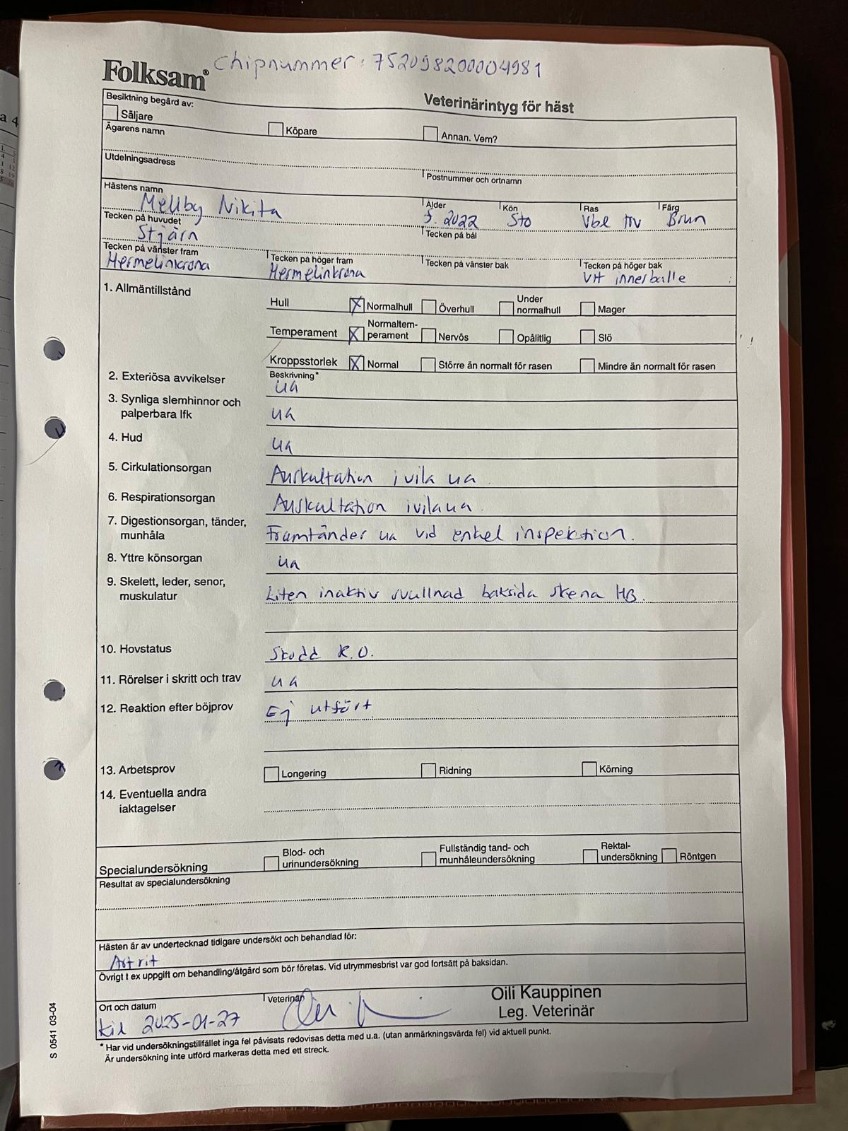 chipnummer: 752098200004981
Folksam
Veterinärintyg för häst
Besiktning begärd av:
Säljare
Köpare
Annan. Vem?
Ägarens namn
Utdelningsadress
Postnummer och ortnamn
Hästens namn
Ålder
Kön
Ras
Färg
Mellby Nikita
f. 2022
Sto
Vbl trv
Brun
Tecken på huvudet
Tecken på bål
Stjärn
Tecken på vänster fram
Tecken på höger fram
Tecken på vänster bak
Tecken på höger bak
Hermelinkrona
Hermelinkrona
Vit innerballe
1. Allmäntillstånd
Hull
Normalhull
Överhull
Under normalhull
Mager
Temperament
Normaltem-
perament
Nervös
Opålitlig
Slö
Kroppsstorlek
Normal
Större än normalt för rasen
Mindre än normalt för rasen
Beskrivning*
2. Exteriösa avvikelser
ua
3. Synliga slemhinnor och
palperbara lfk
ua
4. Hud
ua
5. Cirkulationsorgan
Auskultation i vila ua
6. Respirationsorgan
Auskultation i vila ua
7. Digestionsorgan, tänder,
munhåla
Framtänder ua vid enkel inspektion.
8. Yttre könsorgan
ua
9. Skelett, leder, senor,
muskulatur
Liten inaktiv svullnad baksida skena HB.
10. Hovstatus
Skodd R.O.
11. Rörelser i skritt och trav
ua
12. Reaktion efter böjprov
Ej utfört
13. Arbetsprov
Longering
Ridning
Körning
14. Eventuella andra
iaktagelser
Specialundersökning
Blod- och
urinundersökning
Fullständig tand- och
munhåleundersökning
Rektal-
undersökning
Röntgen
Resultat av specialundersökning
Hästen är av undertecknad tidigare undersökt och behandlad för:
Artrit
Övrigt t ex uppgift om behandling/åtgärd som bör företas. Vid utrymmesbrist var god fortsätt på baksidan.
Ort och datum
Veterinär
Kil 2025-01-27
Oili Kauppinen
Leg. Veterinär
* Har vid undersökningstillfället inga fel påvisats redovisas detta med u.a. (utan anmärkningsvärda fel) vid aktuell punkt.
Är undersökning inte utförd markeras detta med ett streck.
S 0541 03-04